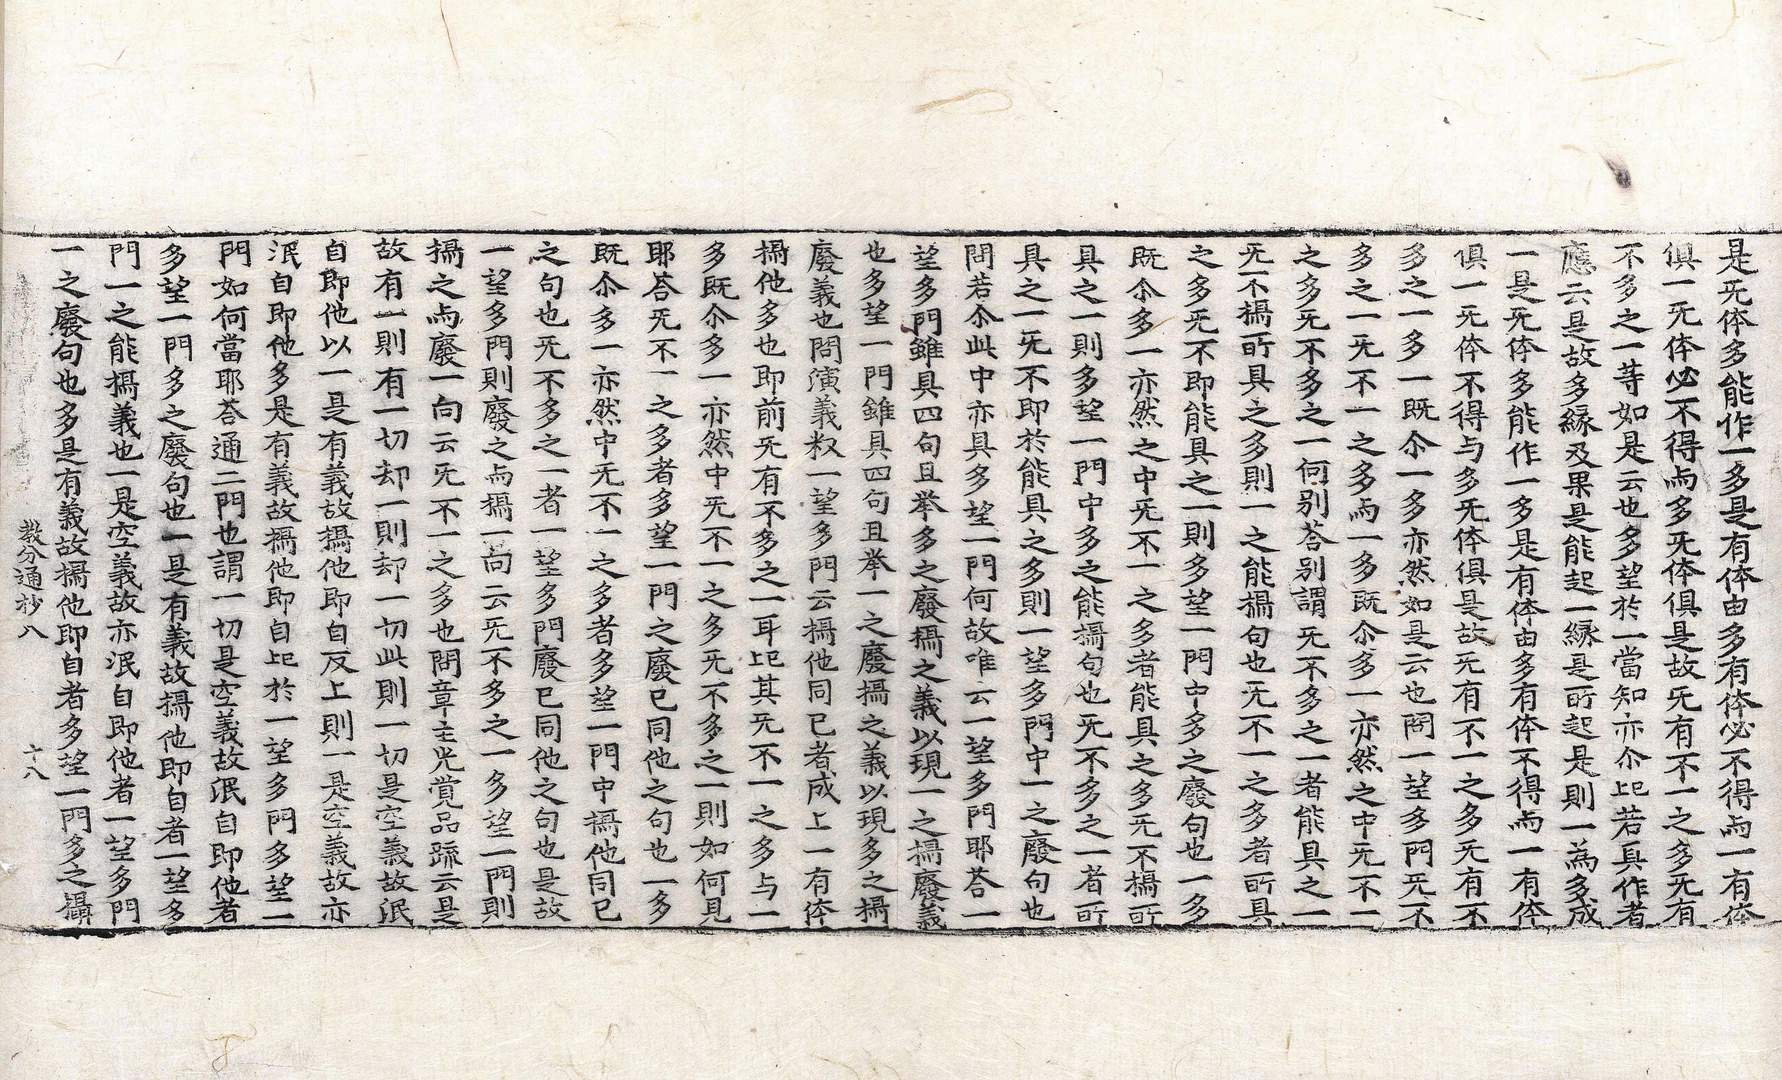 是旡体多能作一多是有体由多有体必不得而一有体
俱一旡体必不得而多旡体俱是故旡有不一之多旡有
不多之一等如是云也多望於一當知亦尒上已若具作者
應云是故多緣及果是能起一緣是所起是則一為多成
一是旡体多能作一多是有体由多有体不得而一有体
俱一旡体不得与多旡体俱是故旡有不一之多旡有不
多之一多一既尒一多亦然如是云也問一望多門旡不
多之一旡不一之多而一多既尒多一亦然之中旡不一
之多旡不多之一何別荅別謂旡不多之一者能具之一
旡不攝所具之多則一之能攝句也旡不一之多者所具
之多旡不即能具之一則多望一門中多之廢句也一多
既尒多一亦然之中旡不一之多者能具之多旡不攝所
具之一則多望一門中多之能攝句也旡不多之一者所
具之一旡不即於能具之多則一望多門中一之廢句也
問若尒此中亦具多望一門何故唯云一望多門耶荅一
望多門雖具四句且举多之廢攝之義以現一之攝廢義
也多望一門雖具四句且举一之廢攝之義以現多之攝
廢義也問演義权一望多門云攝他同已者成上一有体
攝他多也即前旡有不多之一耳上已其旡不一之多与一
多既尒多一亦然中旡不一之多旡不多之一則如何見
耶荅旡不一之多者多望一門之廢已同他之句也一多
既尒多一亦然中旡不一之多者多望一門中攝他同已
之句也旡不多之一者一望多門廢已同他之句也是故
一望多門則廢之而攝一向云旡不多之一多望一門則
攝之而廢一向云旡不一之多也問章主光覺品䟽云是
故有一則有一切却一則却一切此則一切是空義故泯
自即他以一是有義故攝他即自反上則一是空義故亦
泯自即他多是有義故攝他即自上已於一望多門多望一
門如何當耶荅通二門也謂一切是空義故泯自即他者
多望一門多之廢句也一是有義故攝他即自者一望多
門一之能攝義也一是空義故亦泯自即他者一望多門
一之廢句也多是有義故攝他即自者多望一門多之攝
教分通抄八　十八